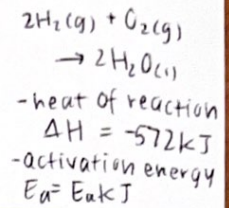 2H₂(g) + O₂(g)
→ 2H₂O(l)
-heat of reaction
ΔH = -572kJ
-activation energy
Ea= EakJ